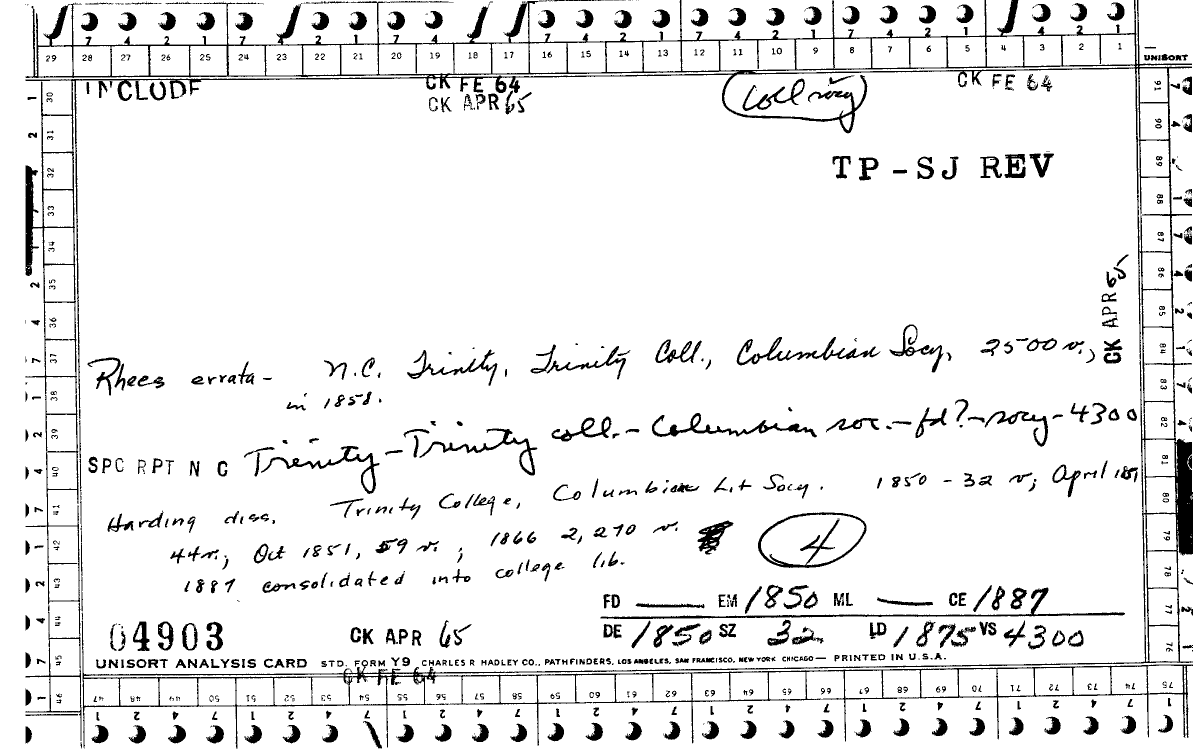 29 28 27 26 25 24 23 22 21 20 19 18 17 16 15 14 13 12 11 10 9 8 7 6 5 4 3 2 1
UNISORT
INCLUDE
CK FE 64
CK APR 65
Coll socy
CK FE 64
TP-SJ REV
CK APR 65
Rhees errata - N.C. Trinity, Trinity Coll., Columbian Socy, 2500 v.,
in 1858.
SPC RPT N C Trinity-Trinity coll.-Columbian soc.-fd?-socy-4300
Harding diss. Trinity College, Columbian Lit Socy. 1850 - 32 v; April 1851
44v.; Oct 1851, 59 v.; 1866 2,270 v.
4
1887 consolidated into college lib.
FD —— EM 1850 ML —— CE 1887
DE 1850 SZ 32 LD 1875 VS 4300
04903
CK APR 65
UNISORT ANALYSIS CARD STD. FORM Y9 CHARLES R HADLEY CO., PATHFINDERS, LOS ANGELES, SAN FRANCISCO, NEW YORK CHICAGO — PRINTED IN U.S.A.
CK FE 64
47 48 49 50 51 52 53 54 55 56 57 58 59 60 61 62 63 64 65 66 67 68 69 70 71 72 73 74 75